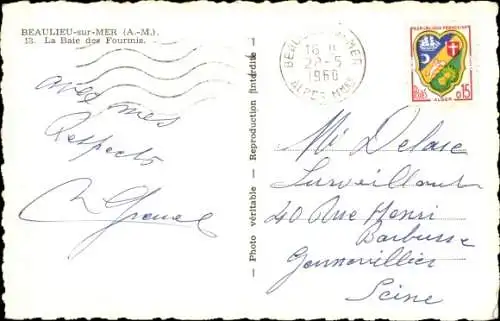 BEAULIEU-sur-MER (A.-M.).
13. La Baie des Fourmis.
avec mes
Respects
BEAULIEU S MER
16 H
22-5
1960
ALPES MMES
REPUBLIQUE FRANÇAISE
Postes 0,15
ALGER
— Photo véritable — Reproduction interdite —
Mr Delase
Surveillant
40 Rue Henri
Barbusse
Gennevilliers
Seine